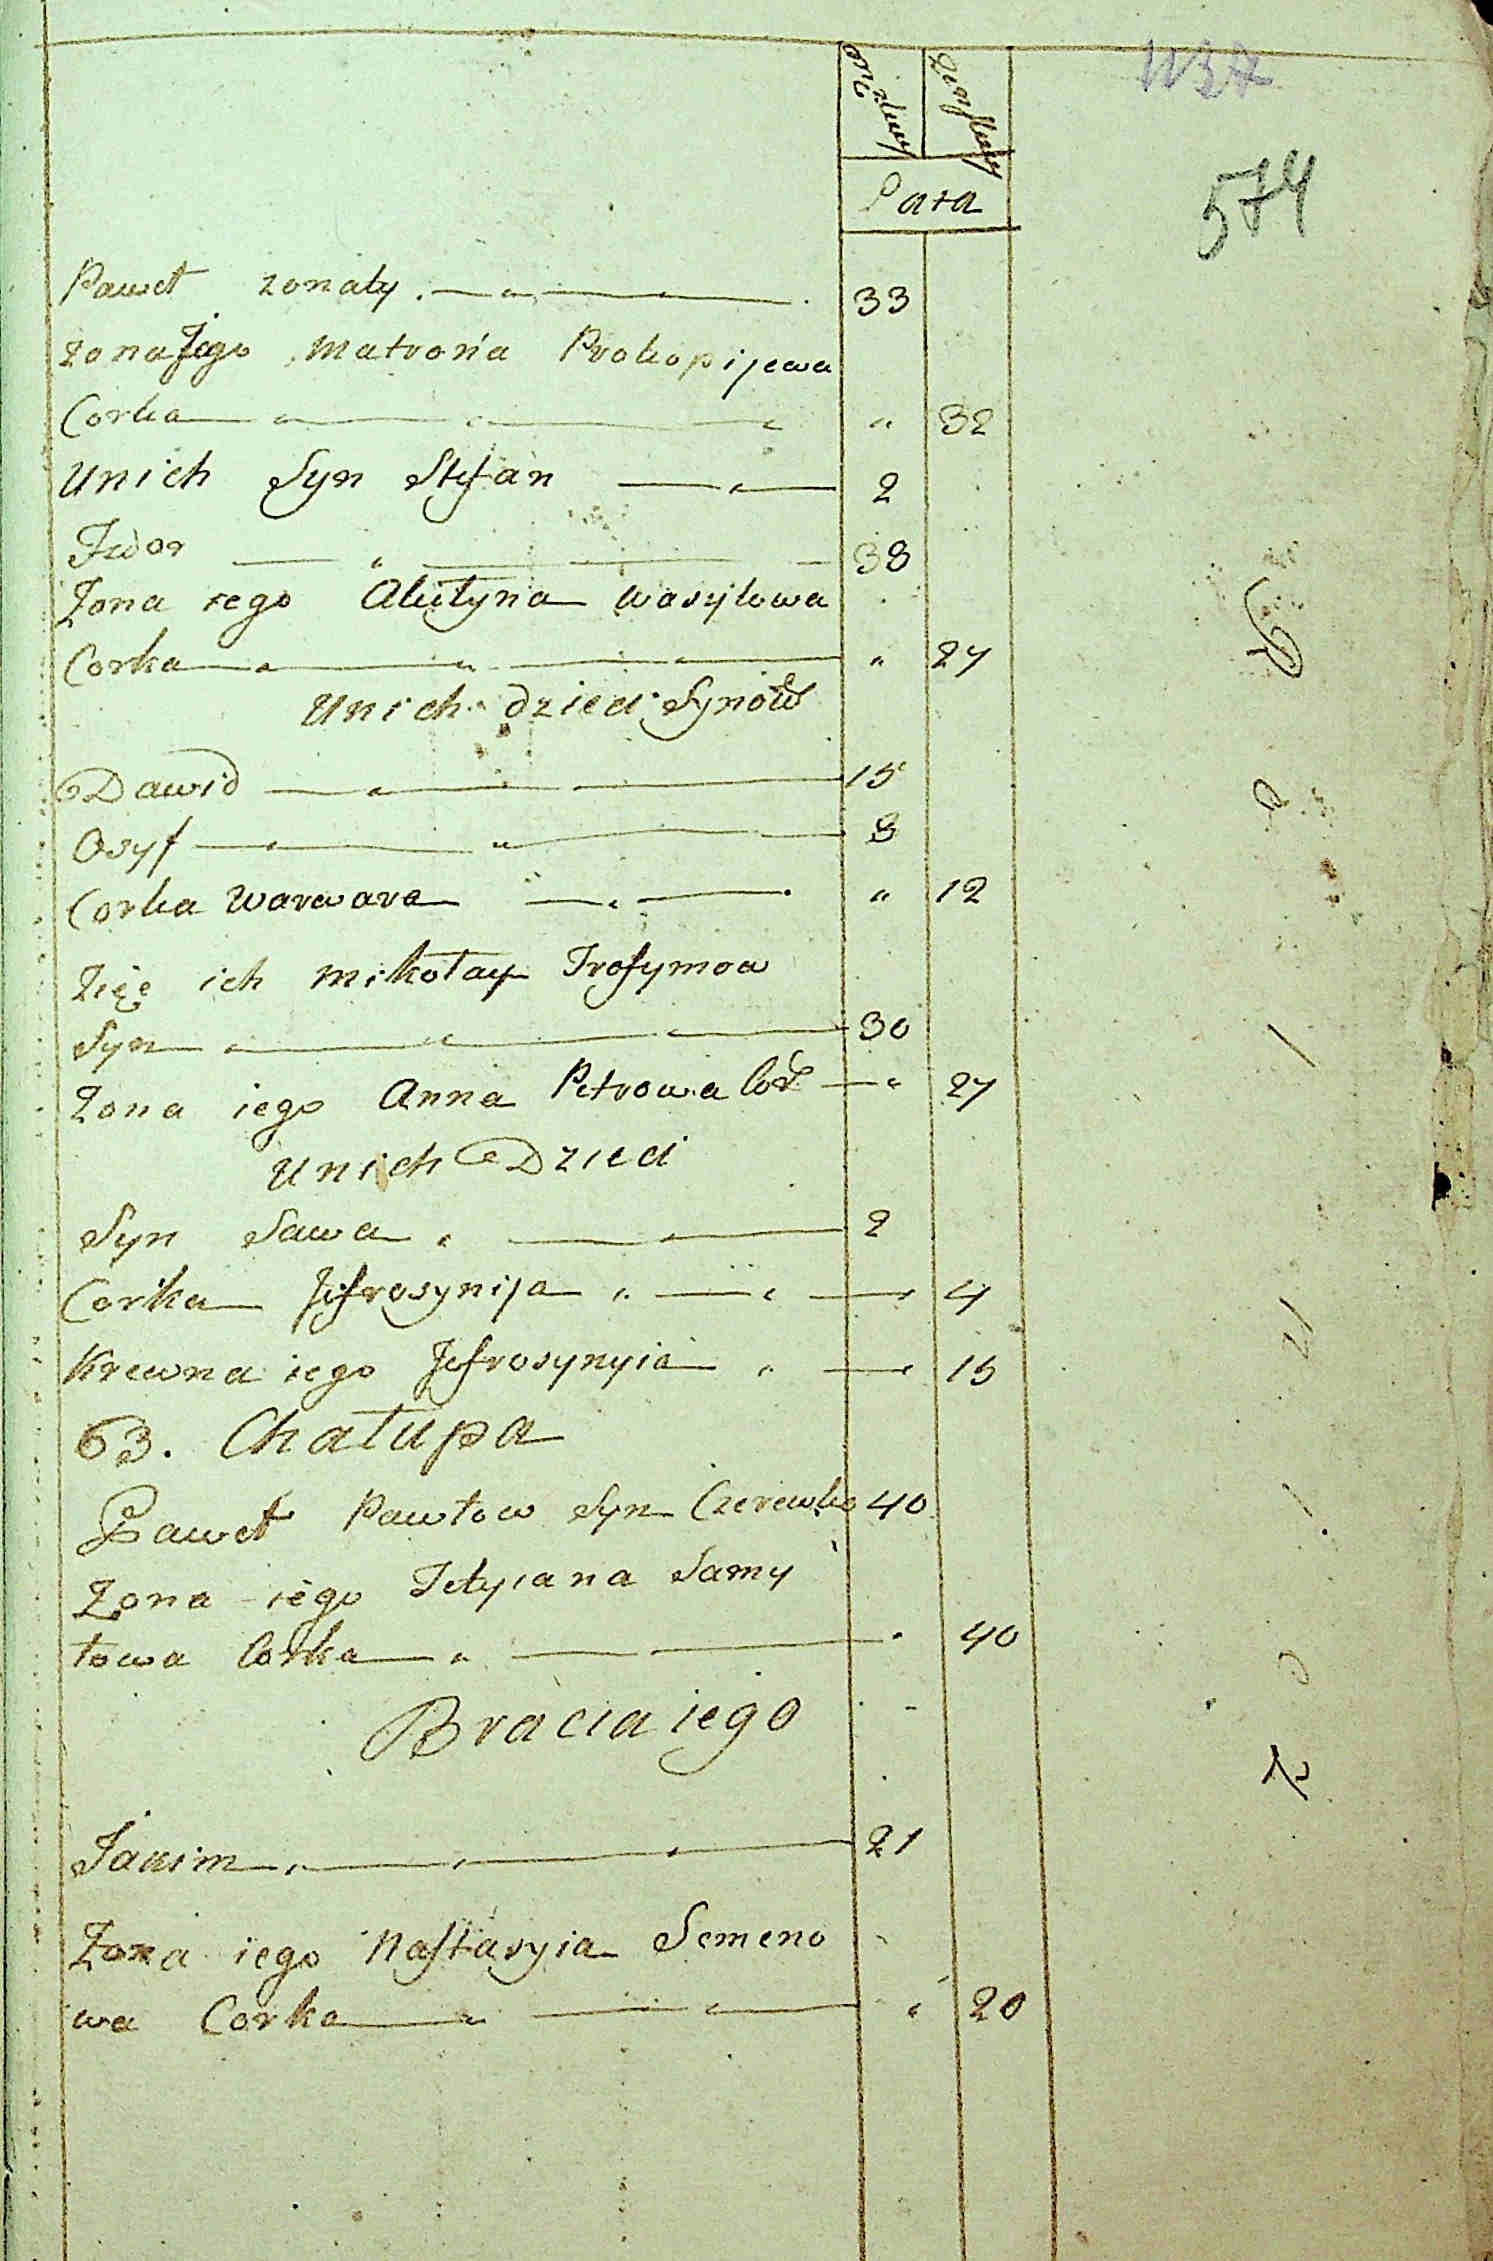 1137
574
Męzkiey
Żeńskiey
Lata
Paweł zonaty 33
zona Jego Matrona Prokopijewa
Corka " 32
Unich Syn Stefan 2
Fedor 38
Zona iego Akilyna Wasyłowa
Corka " 27
Unich dzieci Synow
Dawid 15
Osyf 8
Corka Warwara " 12
Zięć ich Mikołay Trofymow
Syn 30
Zona iego Anna Petrowa Cor " 27
Unich Dzieci
Syn Sawa 2
Corka Jefrosynija 4
Krewna iego Jefrosynyia 15
63. Chałupa
Paweł Pawłow Syn Czerewko 40
Zona iego Tetyiana Samy
łowa Corka 40
Bracia iego
Jakim 21
Zona iego Nastasyia Semeno
wa Corka " 20